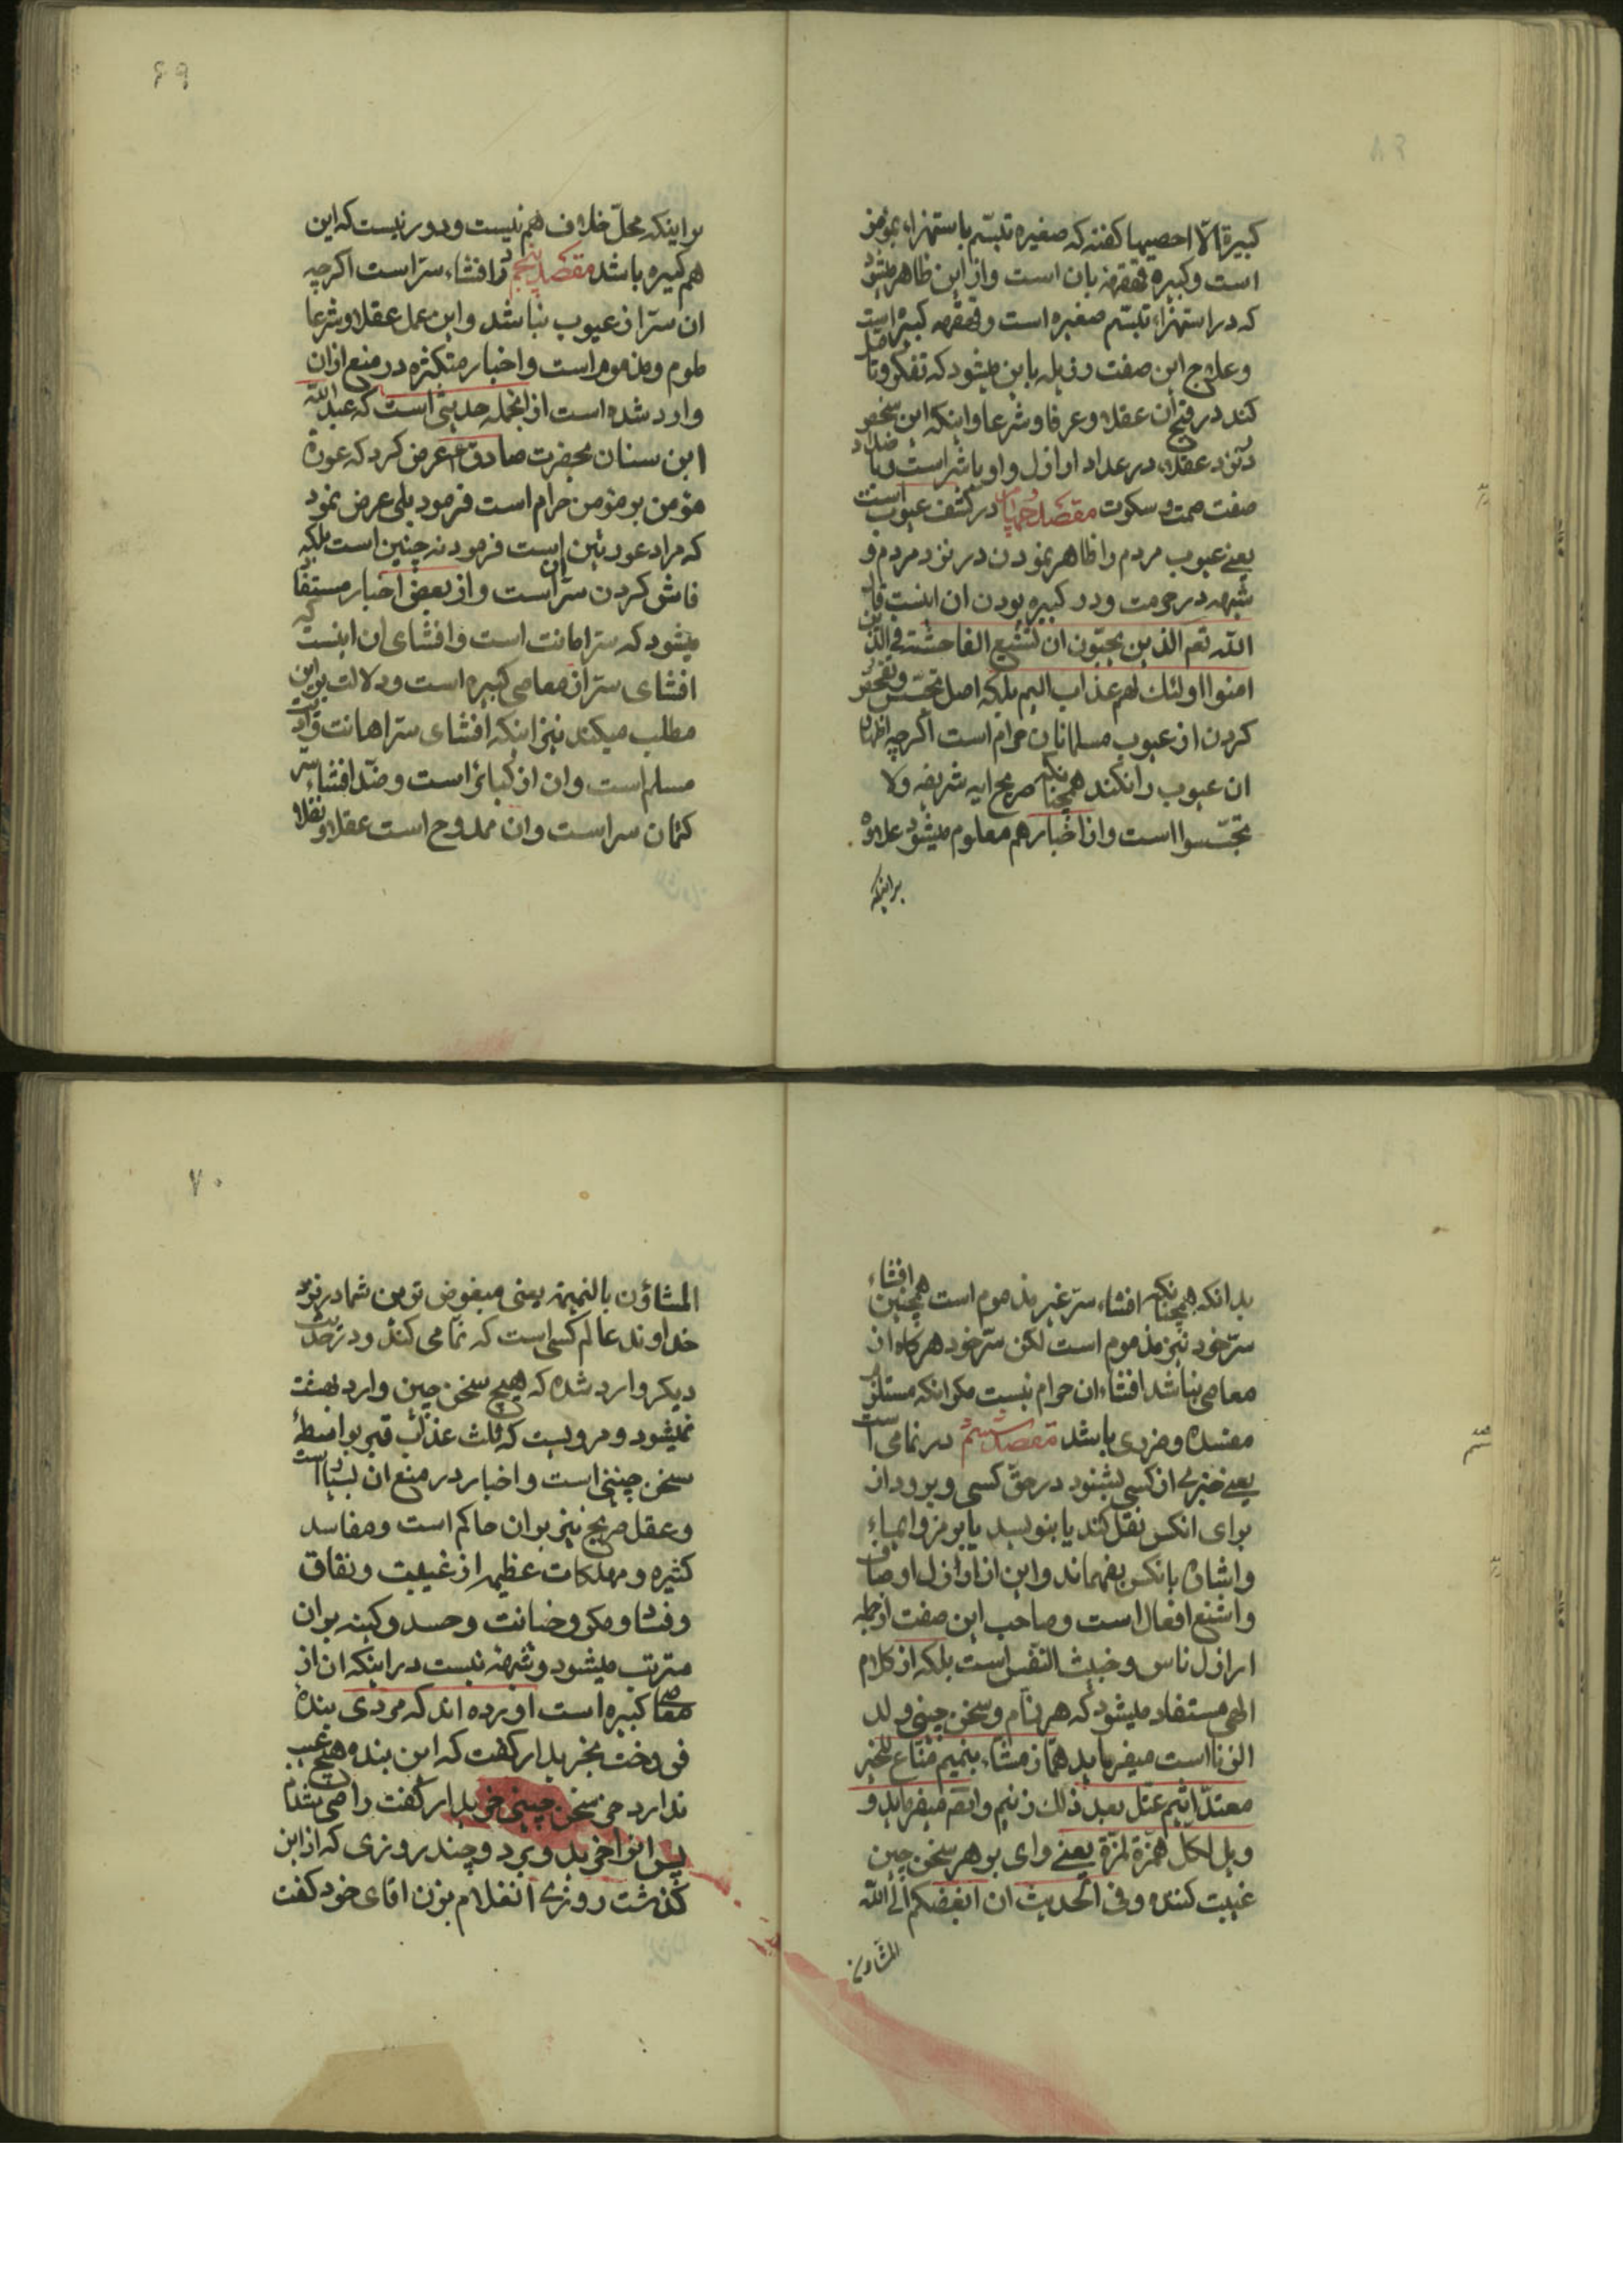 کبیرة الّا احصیها کفته که صغیره تبسّم باستهزاء بمؤمن
است وکبیره قهقهه بان است واز این ظاهر میشود
که در استهزاء تبسّم صغیره است وقهقهه کبیره است
وعلاج این صفت رذیله باین میشود که تفکر وتامل
کند در قبح ان عقلا وعرفا وشرعا واینکه این شخص
در نزد عقلاء در عداد اراذل واوباش است وبا ضداد
صفت صمت وسکوت مقصد چهارم در کشف عیوب است
یعنے عیوب مردم را ظاهر نمودن در نزد مردم و
شبهه در حرمت ودر کبیره بودن ان نیست قال
اللّه تعم الذین یحبّون ان تشیع الفاحشة فی الذین
امنوا اولئك لهم عذاب الیم بلکه اصل تجسّس وتفحّص
کردن از عیوب مسلمانان حرام است اکرچه اظهار
ان عیوب را نکند همچنانکه صریح ایه شریفه ولا
تجسّسوا است واز اخبار هم معلوم میشود علاوه
براینکه
۶۹
براینکه محلّ خلاف هم نیست ودور نیست که این
هم کبیره باشد مقصد پنجم در افشاء سرّ است اکرچه
ان سرّ از عیوب نباشد واین عمل عقلا وشرعا
ملوم ومذموم است واخبار متکثره در منع از ان
وارد شده است از انجمله حدیثی است که عبد اللّه
ابن سنان بحضرت صادق ع عرض کرد که عورة
مؤمن بر مؤمن حرام است فرمود بلی عرض نمود
که مراد عورتین است فرمود نه چنین است بلکه
فاش کردن سرّ ان است واز بعض اخبار مستفاد
میشود که سرّ امانت است وافشای ان اینست که
افشای سرّ از معاصی کبیره است ودلالت بر این
مطلب میکند نیز اینکه افشای سرّ اهانت واذیت
مسلم است وان از کبائر است وضدّ افشاء سر
کتمان سر است وان ممدوح است عقلا ونقلا
بدانکه همچنانکه افشاء سرّ غیر مذموم است همچنین افشاء
سرّ خود نیز مذموم است لکن سرّ خود هرکاه از
معاصی نباشد افشاء ان حرام نیست مکر انکه مستلزم
مفسده وضرری باشد مقصد ششم در نمامی است
یعنے خبرے از کسی بشنود در حقّ کسی وبرود از
برای انکس نقل کند یا بنویسد یا برمز وایماء
واشاره بانکس بفهماند واین از اراذل اوصاف
واشنع افعال است وصاحب این صفت از جمله
اراذل ناس وخبیث النّفس است بلکه از کلام
الهی مستفاد میشود که هر نمّام وسخن چینی ولد
الزّنا است میفرماید همّاز مشّاء بنمیم منّاع للخیر
معتدّ اثیم عتلّ بعد ذلك زنیم وایضم میفرماید و
ویل لکلّ همزة لمزة یعنے وای بر هر سخن چین
غیبت کننده وفی الحدیث ان ابغضکم الی اللّه
المشاؤن
۷۰
المشاؤن بالنمیمة یعنی مبغوض ترین شما در نزد
خداوند عالم کسی است که نمّامی کند ودر حدیث
دیکر وارد شده که هیچ سخن چین وارد بهشت
نمیشود ومرویست که ثلث عذاب قبر بواسطهٔ
سخن چینی است واخبار در منع ان بسیار است
وعقل صریح نیز بر ان حاکم است ومفاسد
کثیره ومهلکات عظیمه از غیبت ونفاق
وفساد ومکر وخیانت وحسد وکینه بر ان
مترتب میشود وشبهه نیست در اینکه ان از
معاصی کبیره است اورده اند که مردی بنده
فروخت بخریدار کفت که این بنده هیچ عیب
ندارد جز سخن چینی خریدار کفت راضی شدم
پس انرا خرید وبرد وچند روزی که از این
کذشت روزے انغلام بزن اقای خود کفت